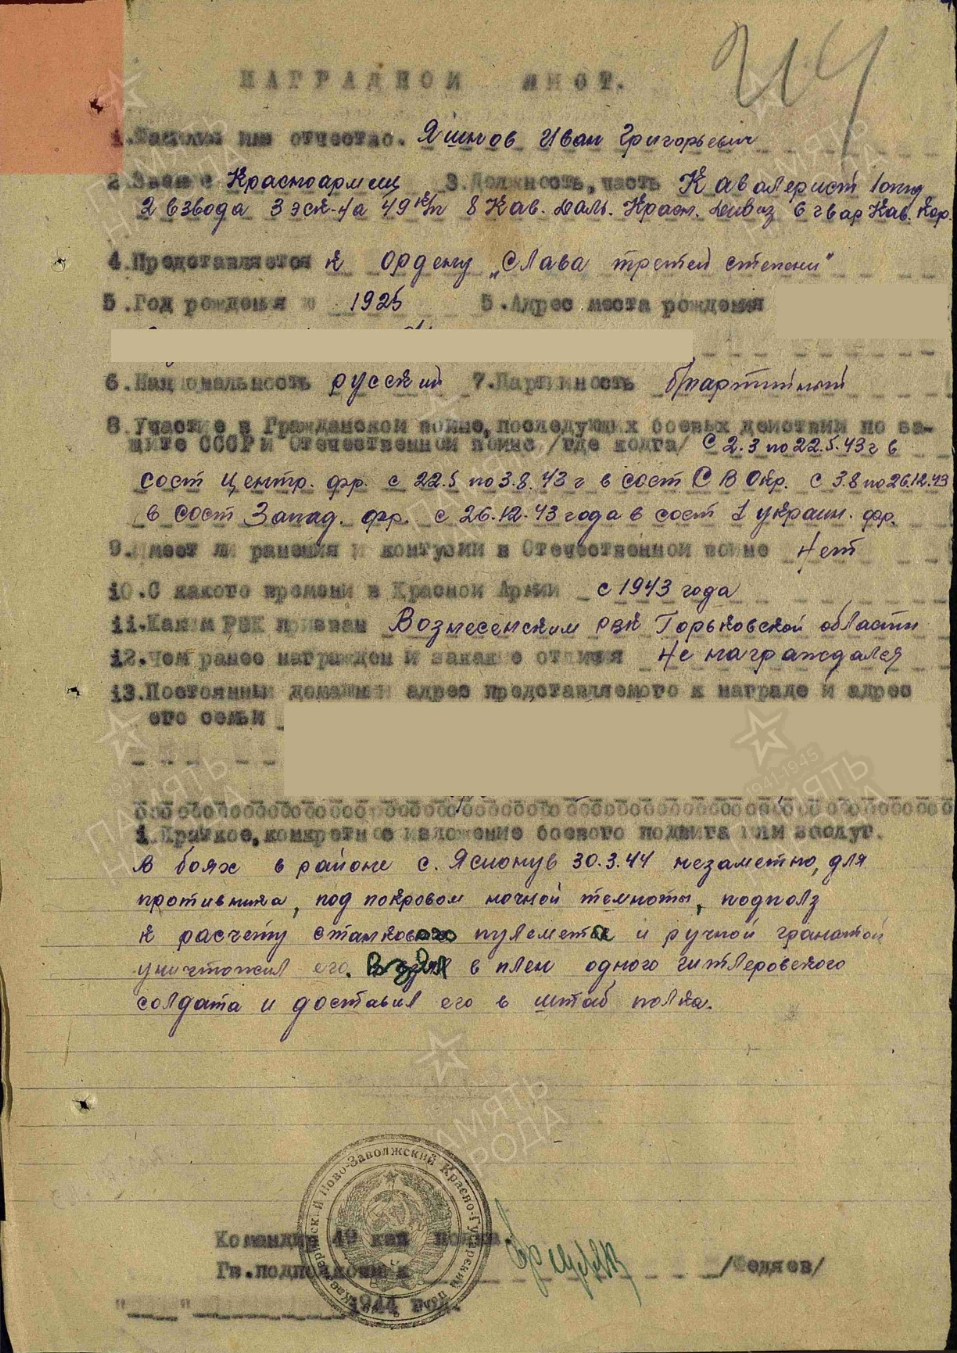 214
НАГРАДНОЙ ЛИСТ.
1. Фамилия имя отчество. Яшнов Иван Григорьевич
2. Звание Красноармеец 3. Должность, часть Кавалерист 1 отд
2 взвода 3 эск-на 49 кп 8 Кав. Даль. Красн. Дивиз 6 гвар Кав. Кор.
4. Представляется к Ордену „Слава третей степени"
5. Год рождения 1925 5. Адрес места рождения
6. Национальность русский 7. Партийность б/партийный
8. Участие в Гражданской войне, последующих боевых действий по за-
щите СССР и Отечественной войне /где когда/ С 2.3 по 22.5.43 г в
сост Центр. фр. с 22.5 по 3.8.43 г в сост С В Окр. с 3.8 по 26.12.43
в сост Запад. фр. с 26.12.43 года в сост 1 Украин. фр.
9. Имеет ли ранения и контузии в Отечественной войне Нет
10. С какого времени в Красной Армии с 1943 года
11. Каким РВК призван Вознесенским рвк Горьковской области
12. Чем ранее награжден и за какие отличия Не награждался
13. Постоянный домашний адрес представляемого к награде и адрес
его семьи
1. Краткое, конкретное изложение боевого подвига или заслуг.
В боях в районе с. Ясионув 30.3.44 незаметно, для
противника, под покровом ночной темноты, подполз
к расчету станкового пулемета и ручной гранатой
уничтожил его. Взял в плен одного гитлеровского
солдата и доставил его в штаб полка.
Командир 49 кав полка.
Гв. подполковник /Федяев/
"___"___ 1944 год.
ПАМЯТЬ НАРОДА
1941-1945